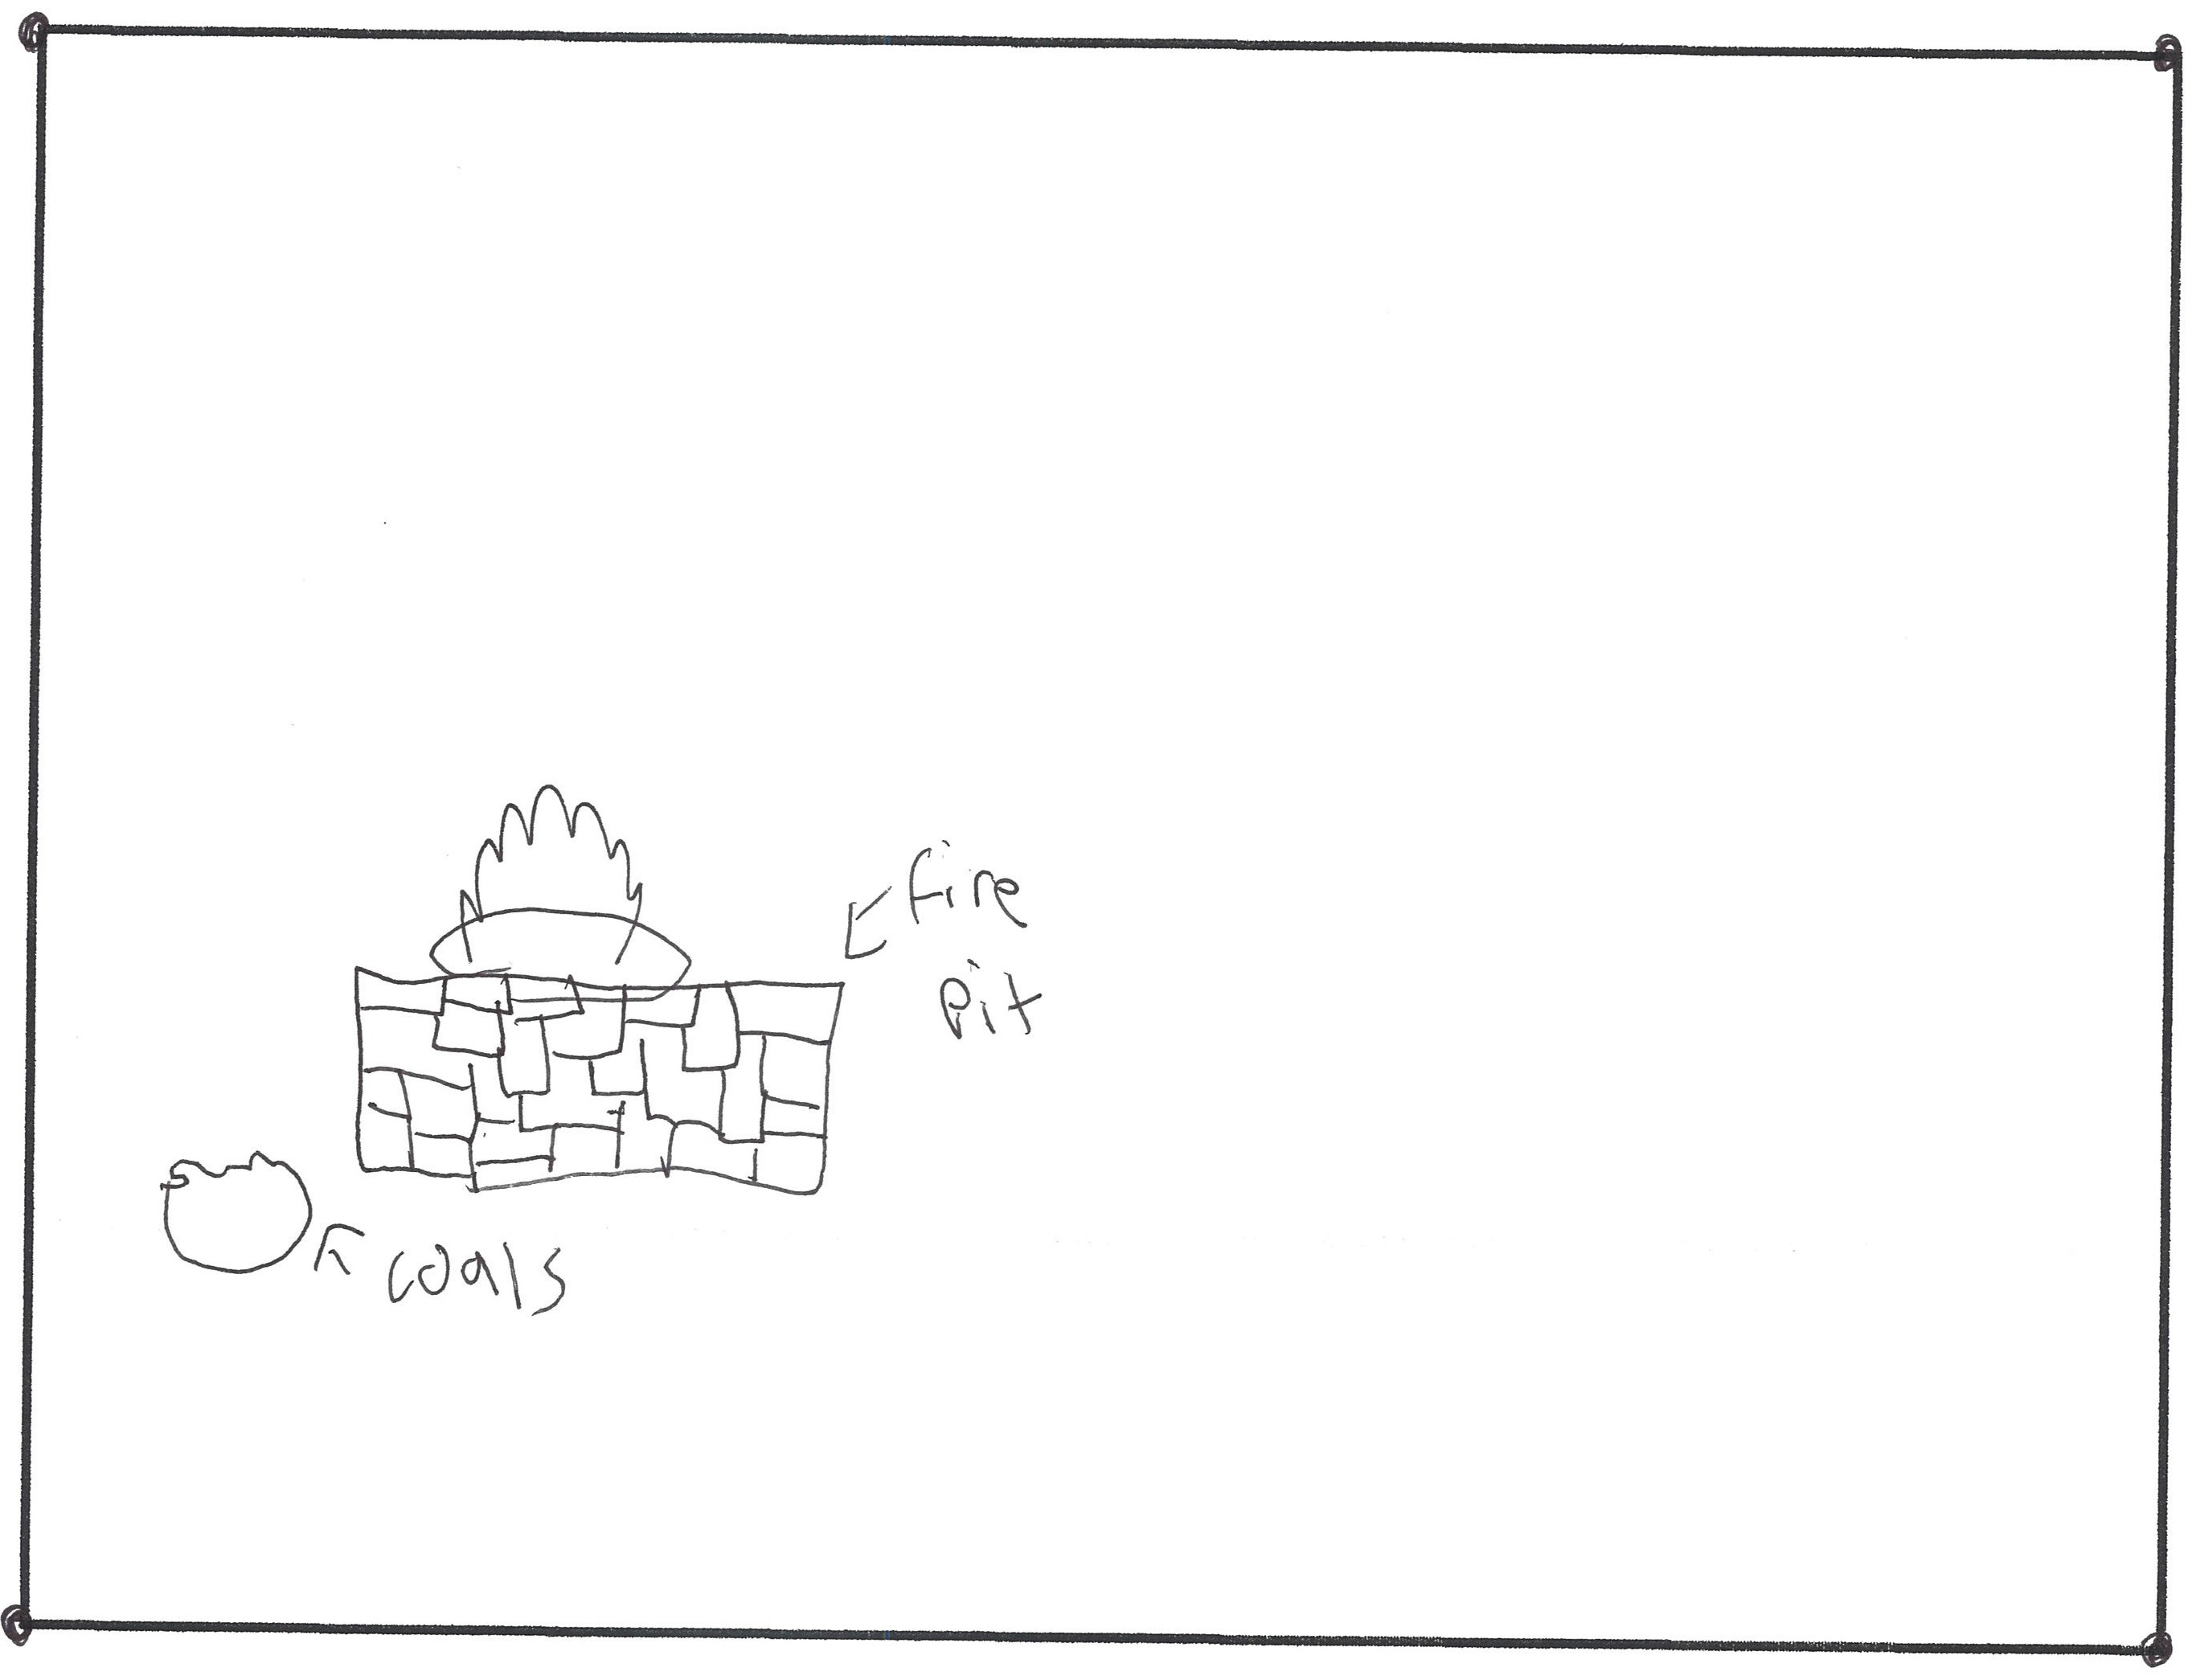 fire
Pit
coals